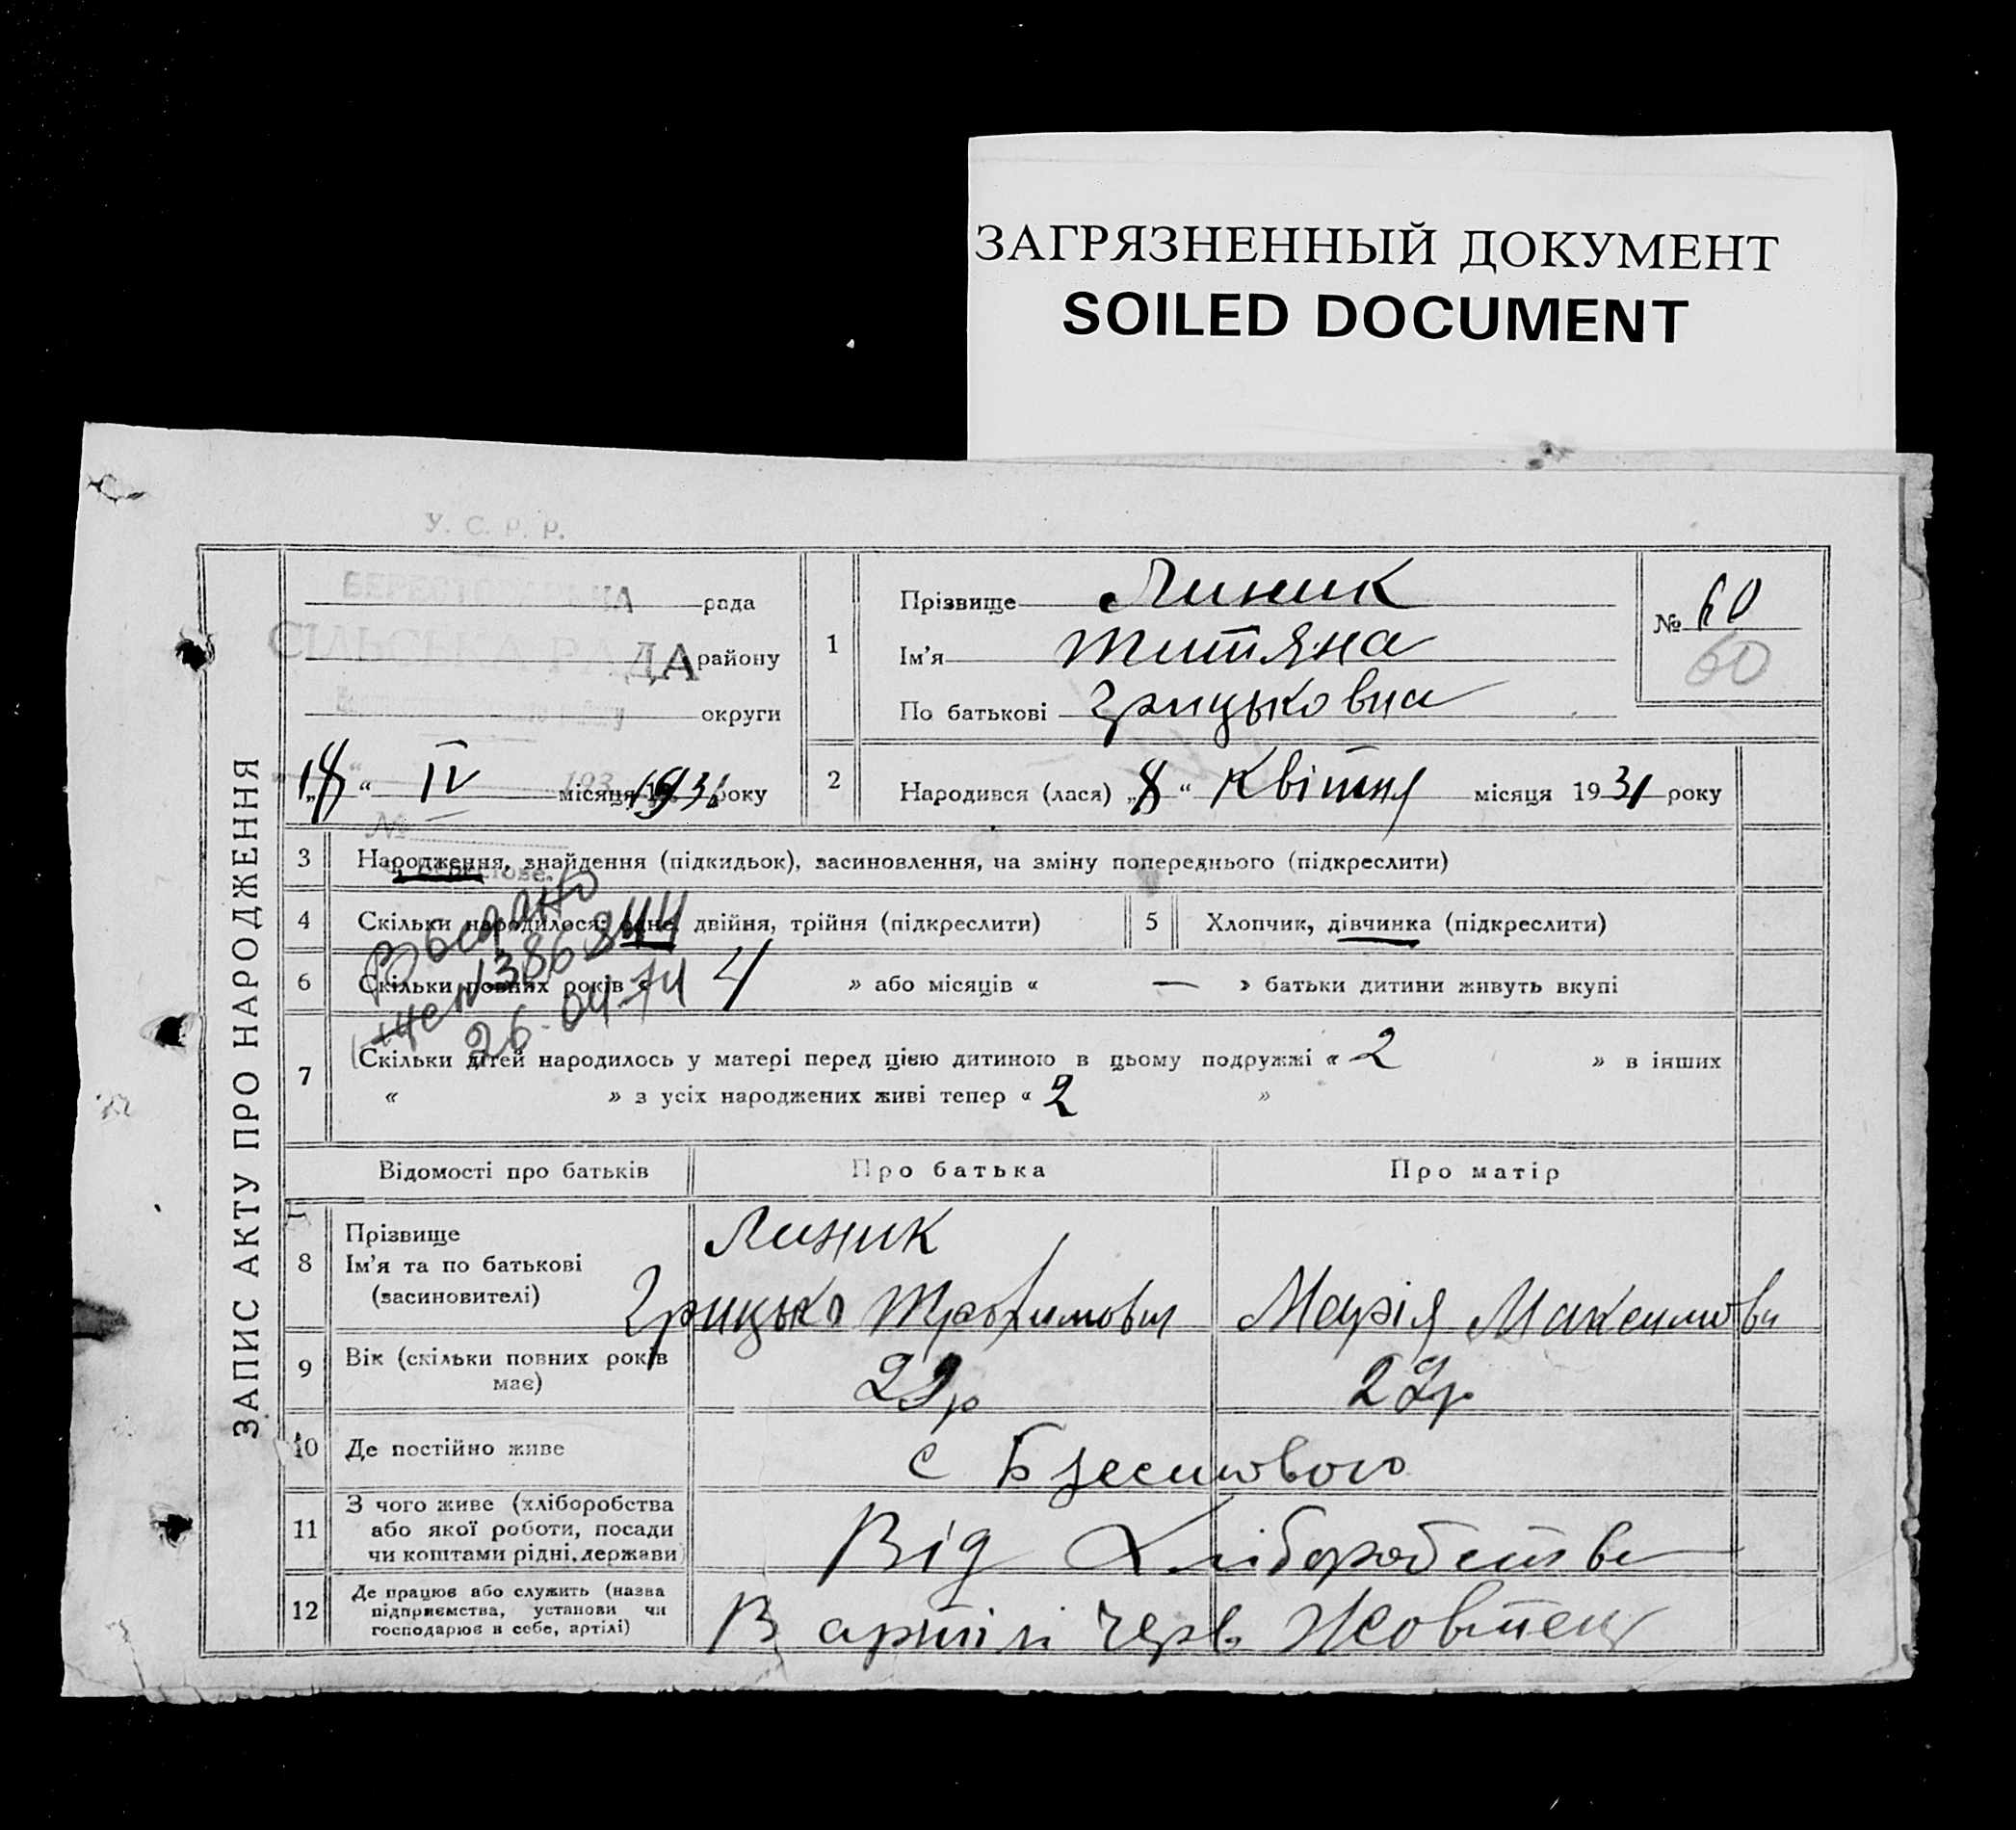 ЗАГРЯЗНЕННЫЙ ДОКУМЕНТ
SOILED DOCUMENT
У. С. Р. Р.
ЗАПИС АКТУ ПРО НАРОДЖЕННЯ
рада
СІЛЬСЬКА РАДА
району
округи
18 “ IV місяця 1931 року
№
1
Прізвище Линик
Ім'я Титяна
По батькові Грицьковна
№ 60
60
2
Народився (лася) „8“ Квітня місяця 1931 року
3 Народження, знайдення (підкидьок), засиновлення, на зміну попереднього (підкреслити)
4 Скільки народилося: одне, двійня, трійня (підкреслити)
5 Хлопчик, дівчинка (підкреслити)
6 Скільки повних років « 4 » або місяців « — » батьки дитини живуть вкупі
26-04-74
7 Скільки дітей народилось у матері перед цією дитиною в цьому подружжі « 2 » в інших
« » з усіх народжених живі тепер « 2 »
Відомості про батьків Про батька Про матір
8 Прізвище
Ім'я та по батькові
(засиновителі)
Линик
Грицько Трохимович Марія Максимовн
9 Вік (скільки повних років має)
22р 22р
10 Де постійно живе
с Берестового
11 З чого живе (хліборобства
або якої роботи, посади
чи коштами рідні, держави
Від Хліборобства
12 Де працює або служить (назва
підприємства, установи чи
господарює в себе, артілі)
В артілі Черв. Жовтень